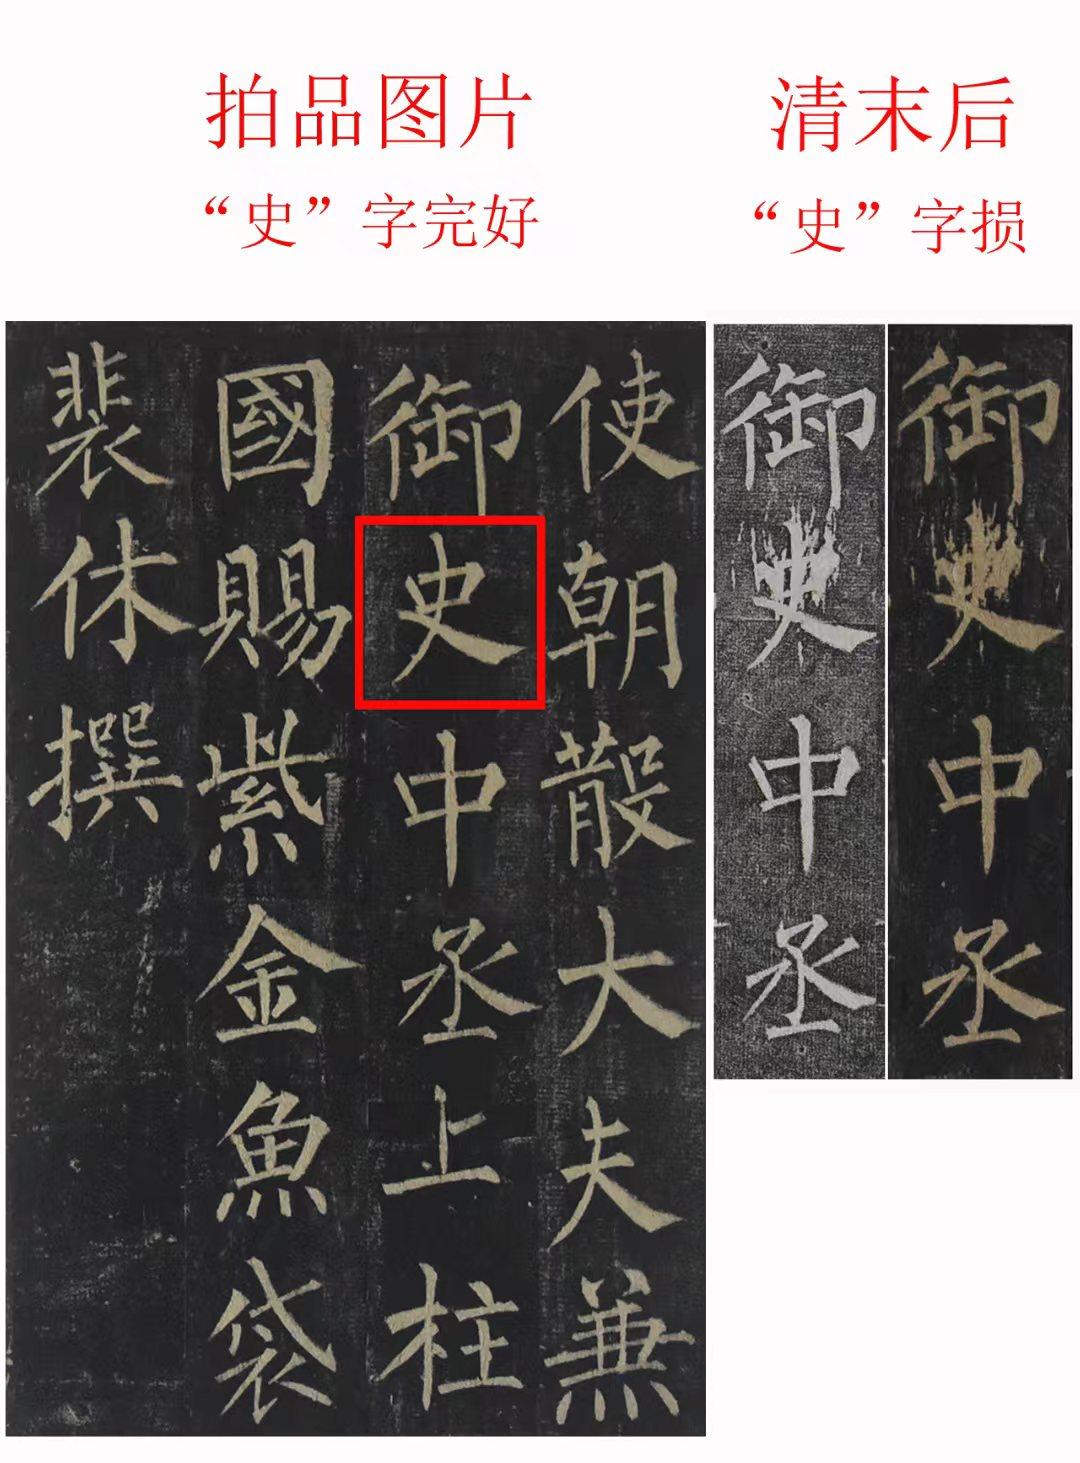 拍品图片
“史”字完好
清末后
“史”字损
使朝散大夫兼
御史中丞上柱
國賜紫金魚袋
裴休撰
御史中丞
御史中丞